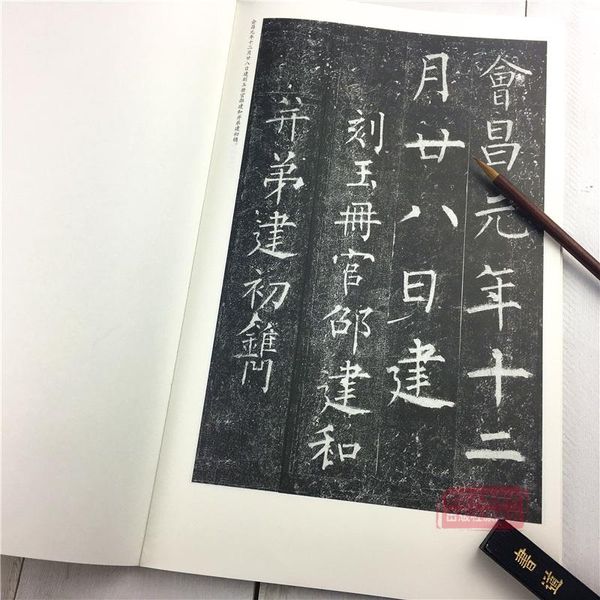 會昌元年十二
月廿八日建
刻玉冊官邵建和
并弟建初鐫
会昌元年十二月廿八日建刻玉册官邵建和并弟建初镌。
書道